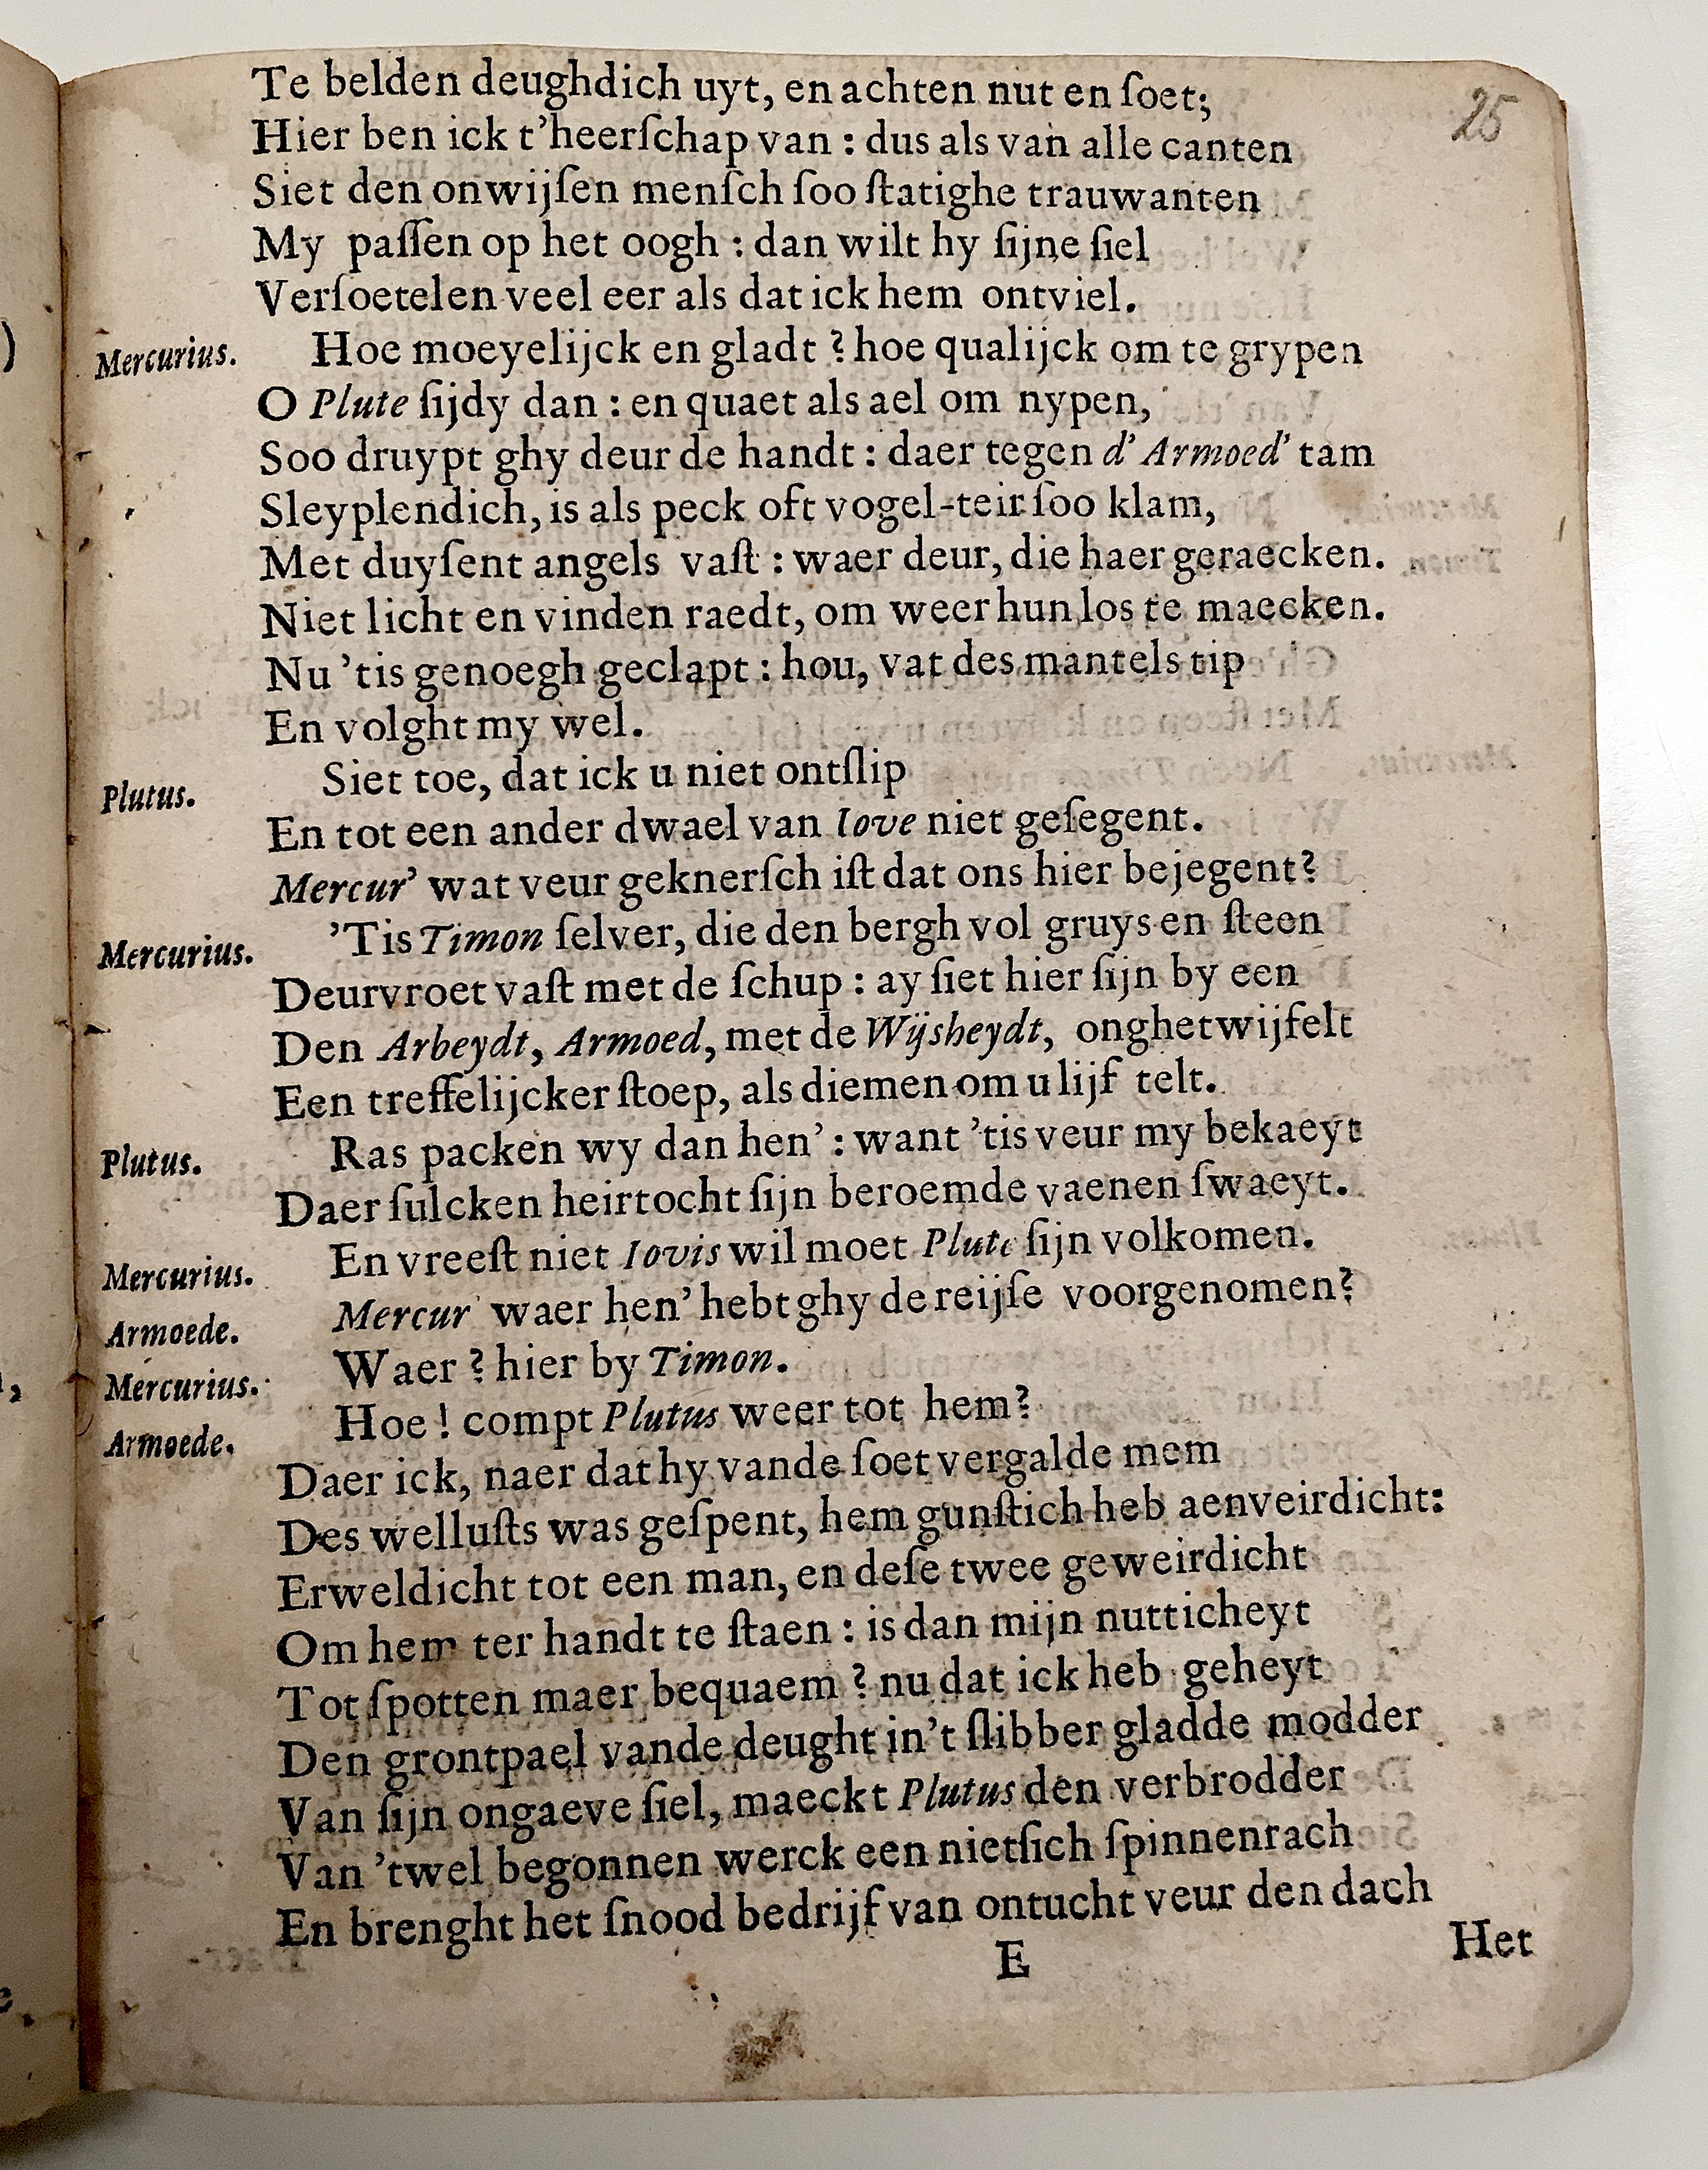 25
Te belden deughdich uyt, en achten nut en ſoet;
Hier ben ick t'heerſchap van : dus als van alle canten
Siet den onwijſen menſch ſoo ſtatighe trauwanten
My paſſen op het oogh : dan wilt hy ſijne ſiel
Verſoetelen veel eer als dat ick hem ontviel.
Mercurius. Hoe moeyelijck en gladt ? hoe qualijck om te grypen
O Plute ſijdy dan : en quaet als ael om nypen,
Soo druypt ghy deur de handt : daer tegen d' Armoed' tam
Sleyplendich, is als peck oft vogel-teir ſoo klam,
Met duyſent angels vaſt : waer deur, die haer geraecken.
Niet licht en vinden raedt, om weer hun los te maecken.
Nu 'tis genoegh geclapt : hou, vat des mantels tip
En volght my wel.
Plutus. Siet toe, dat ick u niet ontſlip
En tot een ander dwael van Iove niet geſegent.
Mercur' wat veur geknerſch iſt dat ons hier bejegent?
Mercurius. 'Tis Timon ſelver, die den bergh vol gruys en ſteen
Deurvroet vaſt met de ſchup : ay ſiet hier ſijn by een
Den Arbeydt, Armoed, met de Wijsheydt, onghetwijfelt
Een treffelijcker ſtoep, als diemen om u lijf telt.
Plutus. Ras packen wy dan hen' : want 'tis veur my bekaeyt
Daer ſulcken heirtocht ſijn beroemde vaenen ſwaeyt.
Mercurius. En vreeſt niet Iovis wil moet Plute ſijn volkomen.
Armoede. Mercur' waer hen' hebt ghy de reijſe voorgenomen?
Mercurius. Waer ? hier by Timon.
Armoede. Hoe ! compt Plutus weer tot hem?
Daer ick, naer dat hy vande ſoet vergalde mem
Des welluſts was geſpent, hem gunſtich heb aenveirdicht:
Erweldicht tot een man, en deſe twee geweirdicht
Om hem ter handt te ſtaen : is dan mijn nutticheyt
Tot ſpotten maer bequaem ? nu dat ick heb geheyt
Den grontpael vande deught in't ſlibber gladde modder
Van ſijn ongaeve ſiel, maeckt Plutus den verbrodder
Van 'twel begonnen werck een nietſich ſpinnenrach
En brenght het ſnood bedrijf van ontucht veur den dach
E
Het